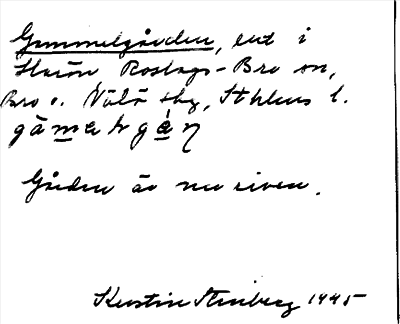 Gammelgården, ent i
Roslags-Bro sn,
Bro o. Vätö skg, Sthlms l.
Gården är nu riven.
Kerstin Stenberg 1945